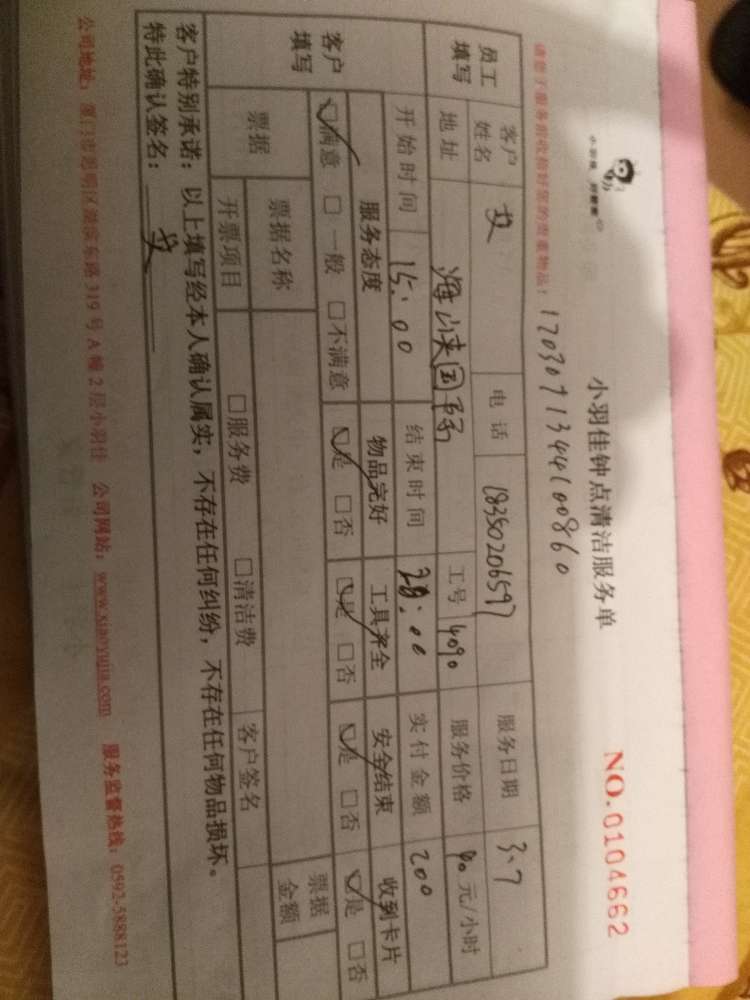 小羽佳钟点清洁服务单
NO.0104662
1703071344100860
员工填写 客户姓名 艾 电话 18350206597 服务日期 3.7
地址 海峡国际 工号 4090 服务价格 40元/小时
开始时间 15:00 结束时间 20:00 实付金额 200
客户填写 服务态度 物品完好 工具齐全 安全结束 收到卡片
☑满意 □一般 □不满意 ☑是 □否 ☑是 □否 ☑是 □否 ☑是 □否
票据 票据名称 票据金额
开票项目 □服务费 □清洁费 客户签名
客户特别承诺:以上填写经本人确认属实,不存在任何纠纷,不存在任何物品损坏。
特此确认签名: 艾
公司地址:厦门市思明区湖滨东路319号A幢2层小羽佳 公司网站:www.xiaoyujia.com 服务监督热线:0592-5888123